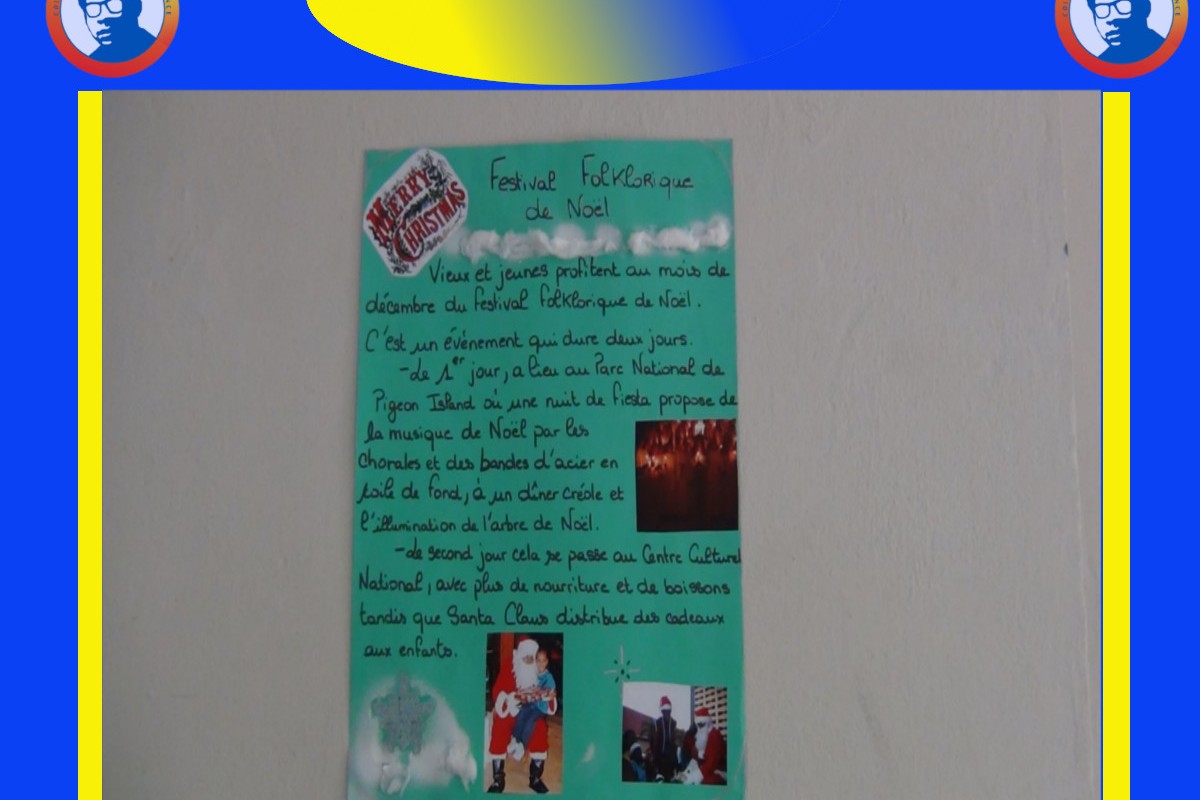 MERRY
CHRISTMAS
Festival Folklorique
de Noël
Vieux et jeunes profitent au mois de
décembre du festival folklorique de Noël.
C'est un événement qui dure deux jours.
-de 1er jour, a lieu au Parc National de
Pigeon Island où une nuit de fiesta propose de
la musique de Noël par les
chorales et des bandes d'acier en
toile de fond, à un dîner créole et
l'illumination de l'arbre de Noël.
-de second jour cela se passe au Centre Culturel
National, avec plus de nourriture et de boissons
tandis que Santa Claus distribue des cadeaux
aux enfants.